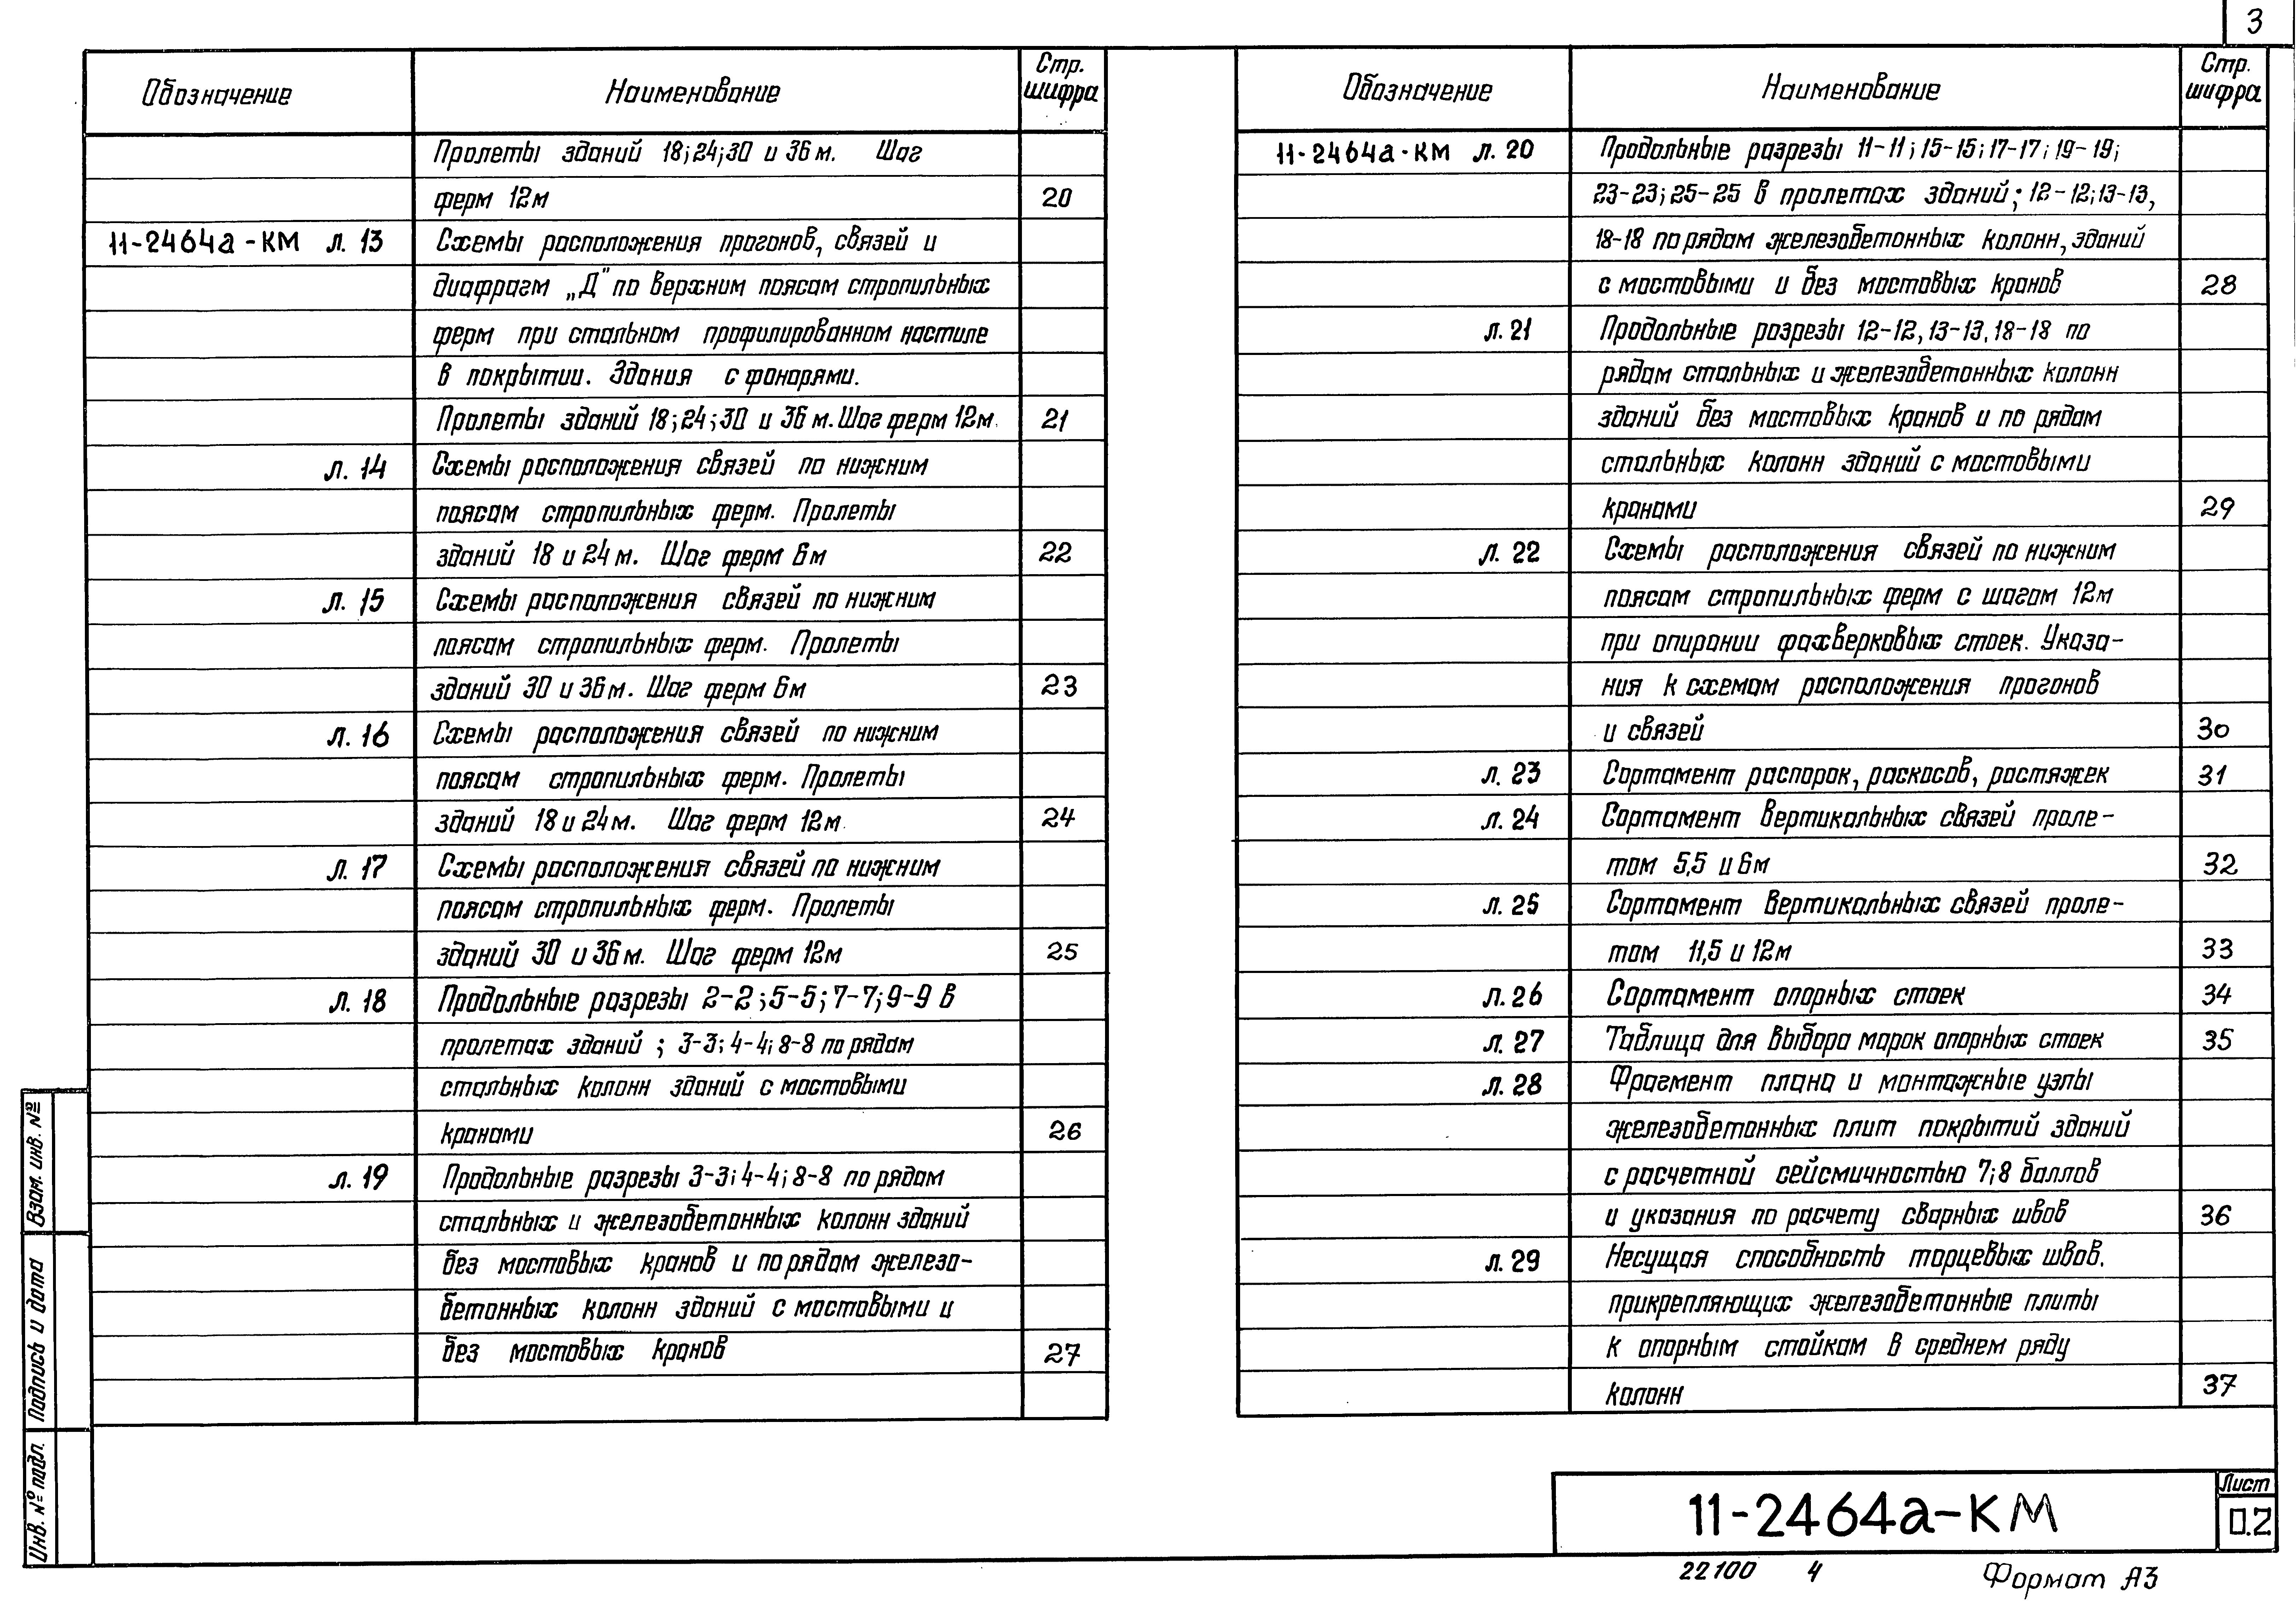 3
Обозначение
Наименование
Стр. шифра
Пролеты зданий 18;24;30 и 36м. Шаг
ферм 12м 20
11-2464а-КМ л. 13 Схемы расположения прогонов, связей и
диафрагм „Д" по верхним поясам стропильных
ферм при стальном профилированном настиле
в покрытии. Здания с фонарями.
Пролеты зданий 18;24;30 и 36м. Шаг ферм 12м. 21
л. 14 Схемы расположения связей по нижним
поясам стропильных ферм. Пролеты
зданий 18 и 24м. Шаг ферм 6м 22
л. 15 Схемы расположения связей по нижним
поясам стропильных ферм. Пролеты
зданий 30 и 36м. Шаг ферм 6м 23
л. 16 Схемы расположения связей по нижним
поясам стропильных ферм. Пролеты
зданий 18 и 24м. Шаг ферм 12м 24
л. 17 Схемы расположения связей по нижним
поясам стропильных ферм. Пролеты
зданий 30 и 36м. Шаг ферм 12м 25
л. 18 Продольные разрезы 2-2;5-5;7-7;9-9 в
пролетах зданий ; 3-3;4-4;8-8 по рядам
стальных колонн зданий с мостовыми
кранами 26
л. 19 Продольные разрезы 3-3;4-4;8-8 по рядам
стальных и железобетонных колонн зданий
без мостовых кранов и по рядам железо-
бетонных колонн зданий с мостовыми и
без мостовых кранов 27
Обозначение
Наименование
Стр. шифра
11-2464а-КМ л. 20 Продольные разрезы 11-11;15-15;17-17;19-19;
23-23;25-25 в пролетах зданий; 12-12;13-13,
18-18 по рядам железобетонных колонн, зданий
с мостовыми и без мостовых кранов 28
л. 21 Продольные разрезы 12-12,13-13,18-18 по
рядам стальных и железобетонных колонн
зданий без мостовых кранов и по рядам
стальных колонн зданий с мостовыми
кранами 29
л. 22 Схемы расположения связей по нижним
поясам стропильных ферм с шагом 12м
при опирании фахверковых стоек. Указа-
ния к схемам расположения прогонов
и связей 30
л. 23 Сортамент распорок, раскосов, растяжек 31
л. 24 Сортамент вертикальных связей проле-
том 5,5 и 6м 32
л. 25 Сортамент вертикальных связей проле-
том 11,5 и 12м 33
л. 26 Сортамент опорных стоек 34
л. 27 Таблица для выбора марок опорных стоек 35
л. 28 Фрагмент плана и монтажные узлы
железобетонных плит покрытий зданий
с расчетной сейсмичностью 7;8 баллов
и указания по расчету сварных швов 36
л. 29 Несущая способность торцевых швов,
прикрепляющих железобетонные плиты
к опорным стойкам в среднем ряду
колонн 37
Взам. инв. №
Подпись и дата
Инв. № подл.
11-2464а-КМ
Лист
0.2
22100 4 Формат А3